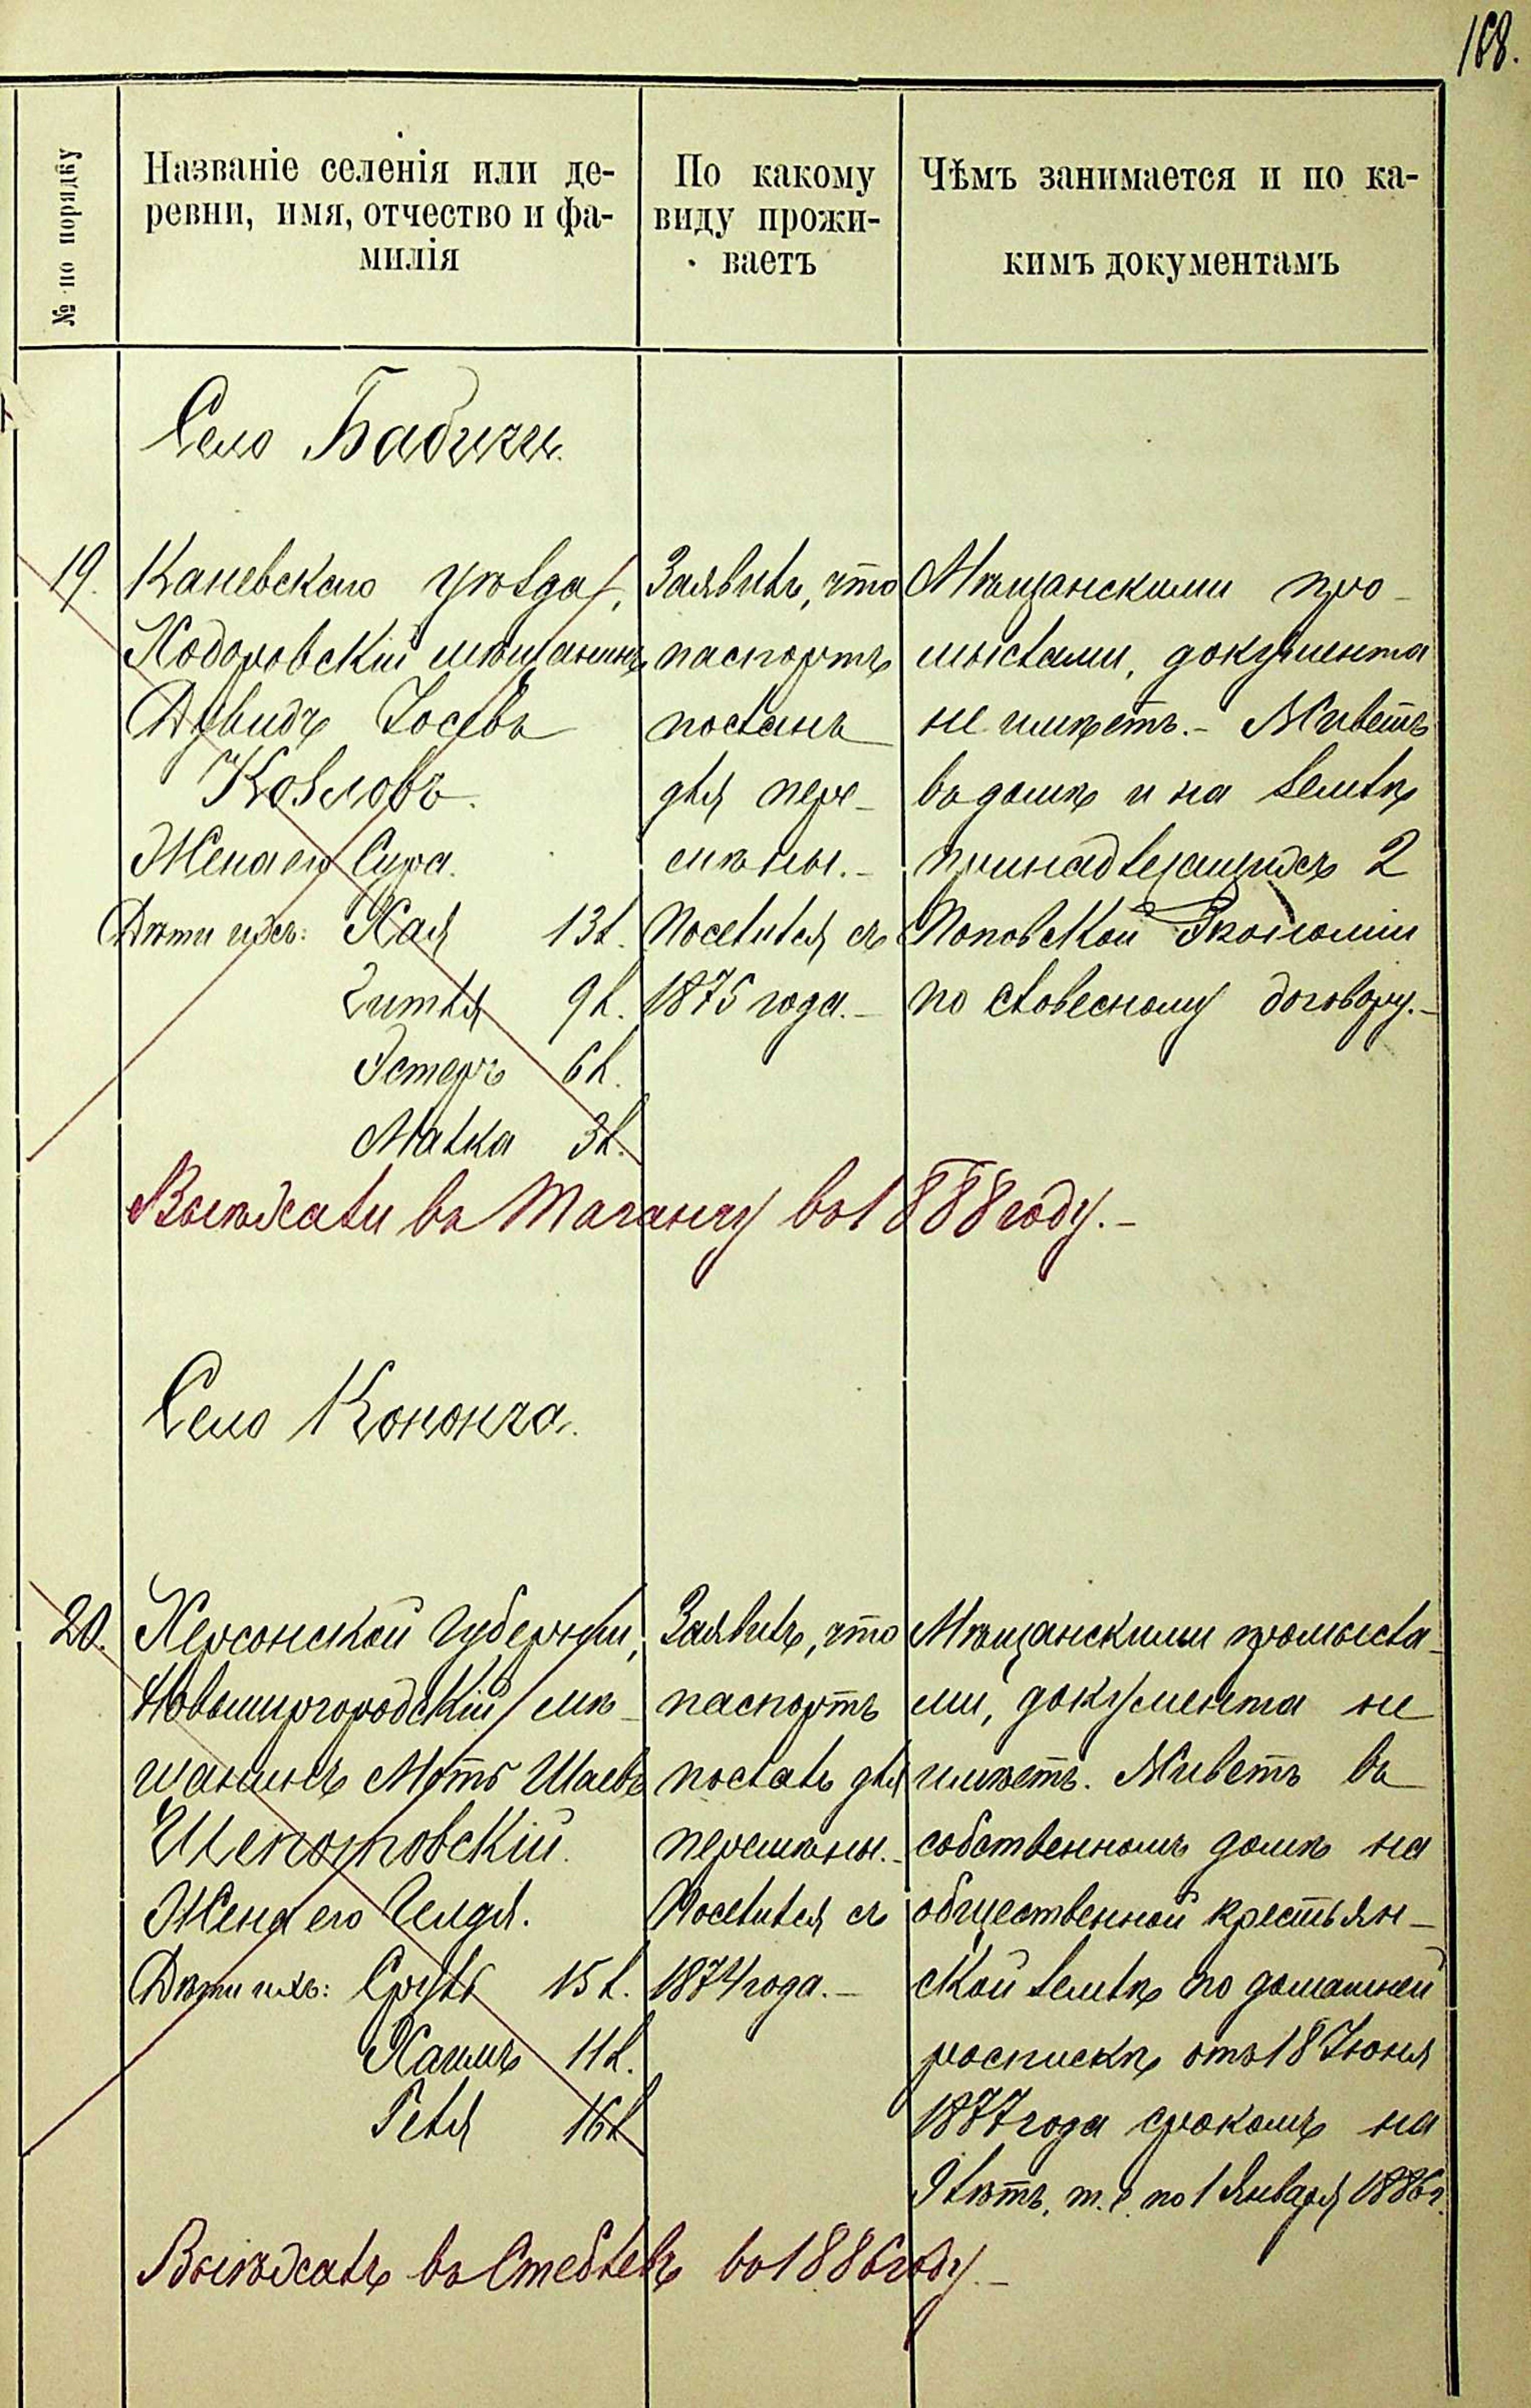 168.
№ по порядку
Названіе селенія или де-
ревни, имя, отчество и фа-
милія
По какому
виду прожи-
ваетъ
Чѣмъ занимается и по ка-
кимъ документамъ
Село Бабичи.
19.
Каневскаго уѣзда,
Ходоровскій мѣщанинъ
Дувидъ Іосевъ
Козловъ.
Жена его Сура.
Дѣти ихъ: Хая 13 л.
9 л.
Эстеръ 6 л.
Малка 3 л.
Заявилъ, что
паспортъ
посланъ
для пере-
мѣны.-
Поселился съ
1875 года.-
Мѣщанскими про-
мыслами, документа
не имѣетъ.- Живетъ
въ домѣ и на землѣ
принадлежащихъ 2
Поповской Экономіи
по словесному договору.-
Выѣхали въ Таганчу въ 1888 году.-
Село Кононча.
20.
Херсонской Губерніи,
Новомиргородскій мѣ-
щанинъ Мотъ Шаевъ
Шепотовскій.
Жена его
Дѣти ихъ: Сруль 15 л.
Хаимъ 11 л.
Геля 16 л
Заявилъ, что
паспортъ
послалъ для
перемѣны.-
Поселился съ
1874 года.-
Мѣщанскими промысла-
ми, документа не
имѣетъ. Живетъ въ
собственномъ домѣ на
общественной крестьян-
ской землѣ по домашней
роспискѣ отъ 18 Іюня
1877 года срокомъ на
9 лѣтъ, т. е. по 1 Января 1886 г.
Выѣхалъ въ Стеблевъ въ 1886 году.-